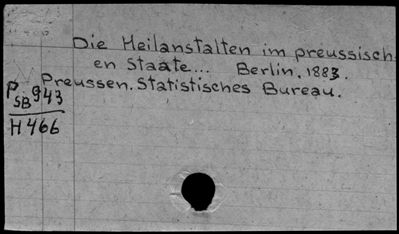 Die Heilanstalten im preussisch-
en Staate... Berlin. 1883.
Preussen. Statistisches Bureau.
P
SB943
H466